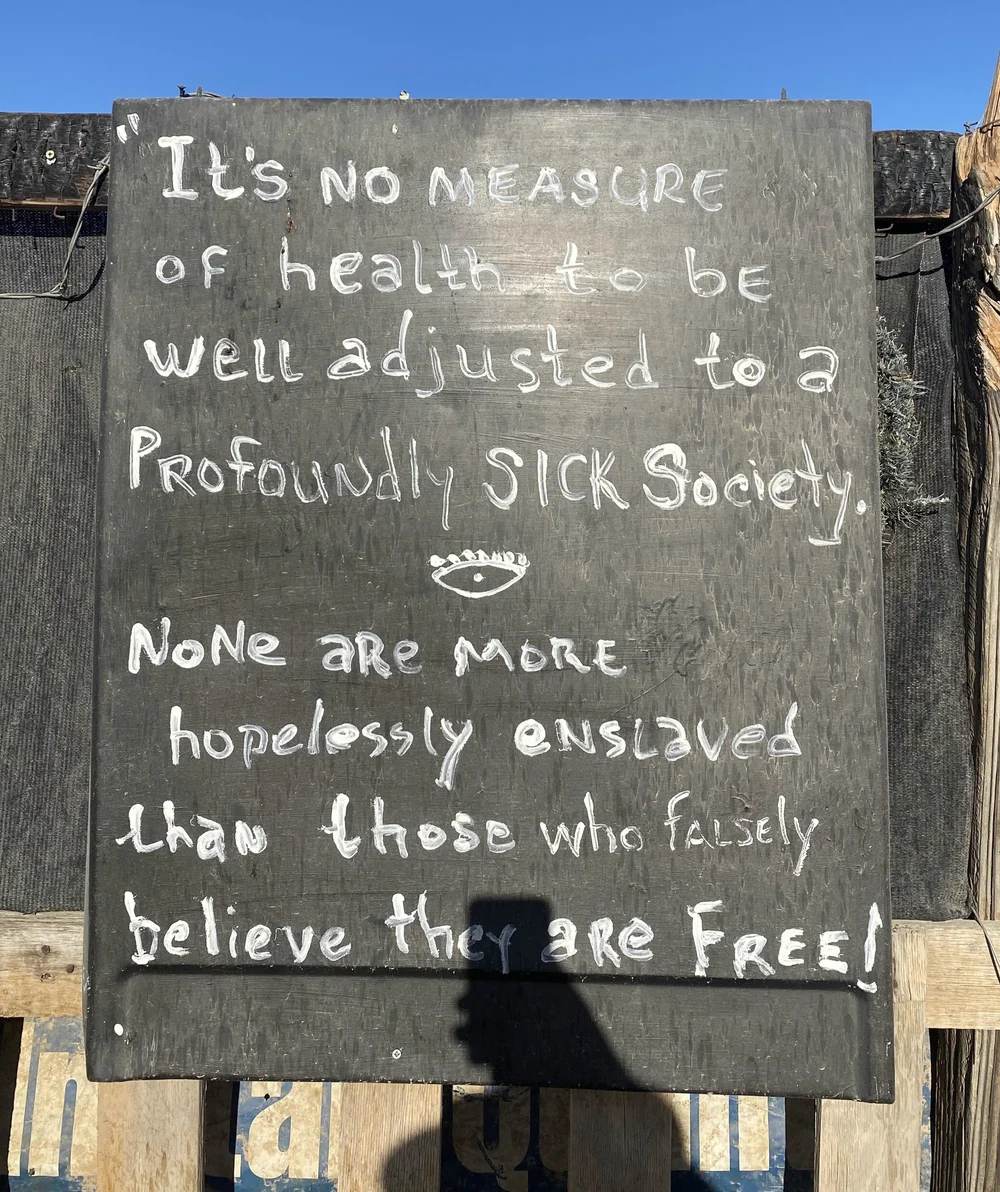 "It's NO MEASURE
of health to bE
well adjusted to a
PRofouNdly SICK Society.
NoNe aRe MORE
hopelessly eNslaved
thaN those who fALSEly
believe they aRe FREE!